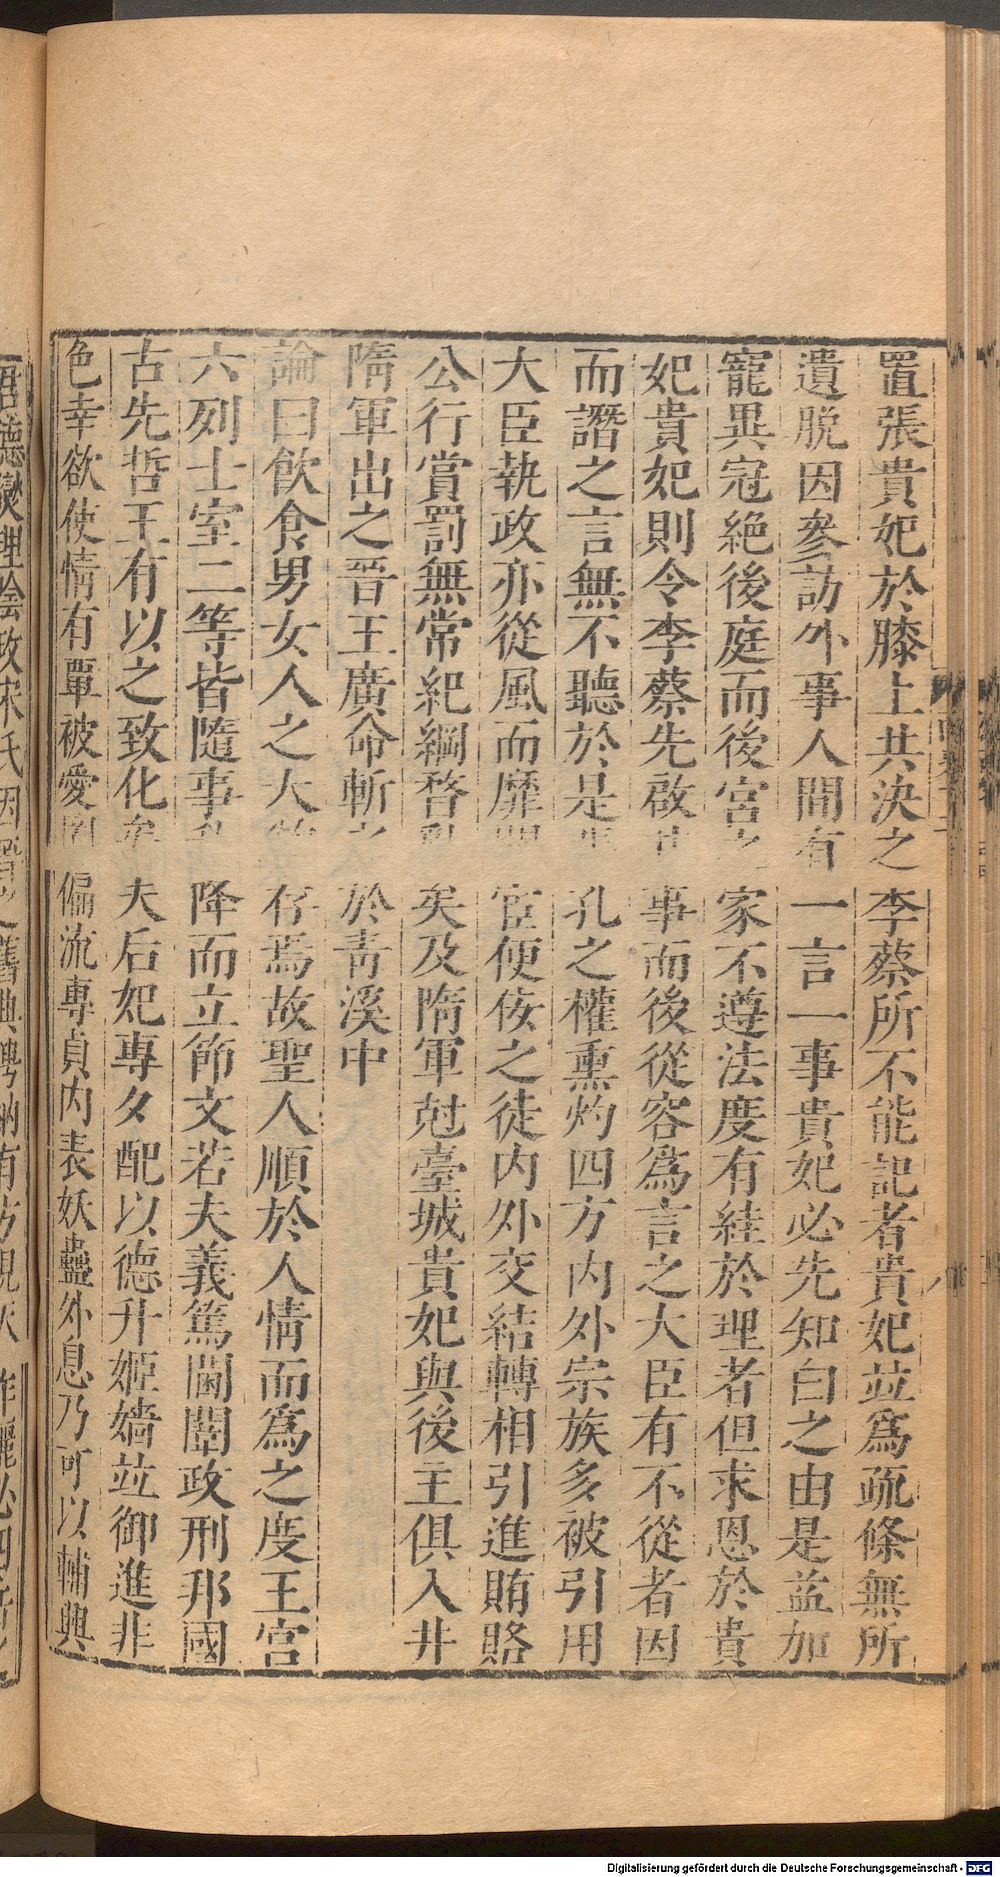 置張貴妃於膝上共決之李蔡所不能記者貴妃並爲疏條無所
遺脫因參訪外事人間有一言一事貴妃必先知白之由是益加
寵異冠絕後庭而後宮之家不遵法度有絓於理者但求恩於貴
妃貴妃則令李蔡先啟事而後從容爲言之大臣有不從者因
而譖之言無不聽於是孔之權熏灼四方内外宗族多被引用
大臣執政亦從風而靡宦便佞之徒内外交結轉相引進賄賂
公行賞罰無常紀綱瞀矣及隋軍尅臺城貴妃與後主俱入井
隋軍出之晉王廣命斬於青溪中
論曰飲食男女人之大存焉故聖人順於人情而爲之度王宮
六列士室二等皆隨事降而立節文若夫義篤閫闈政刑邦國
古先哲王有以之致化夫后妃專夕配以德升姬嬙並御進非
色幸欲使情有罩被愛偏流專貞内表妖蠱外息乃可以輔興
Digitalisierung gefördert durch die Deutsche Forschungsgemeinschaft - DFG